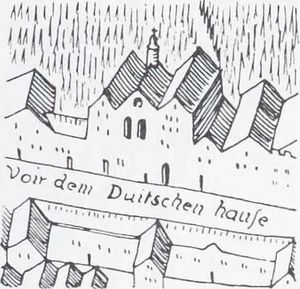 Voir dem Duitschen hauſe